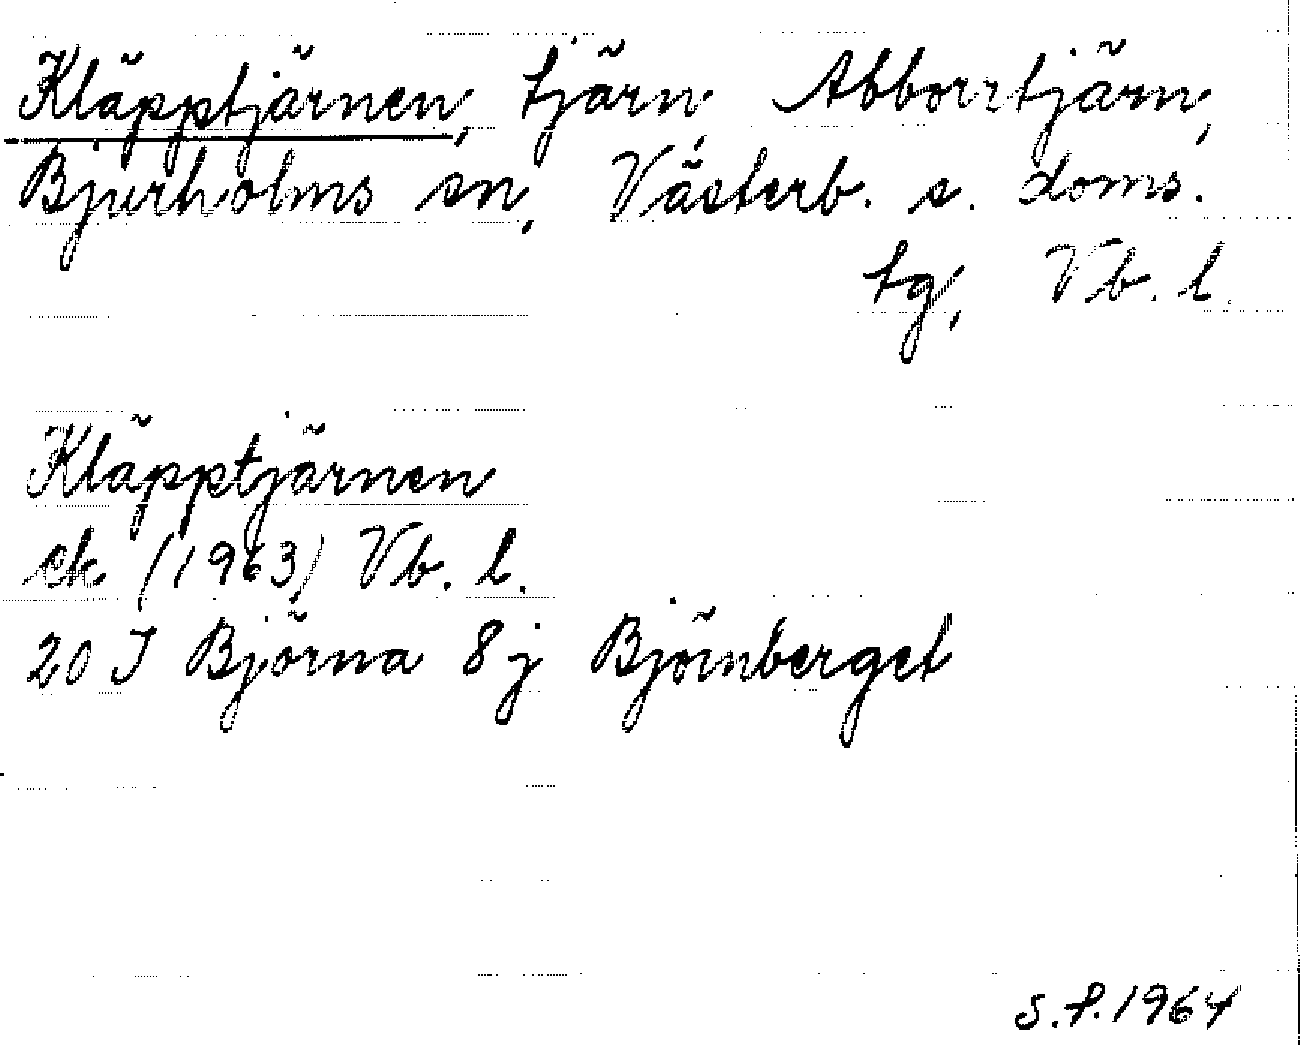 Kläpptjärnen, tjärn, Abborrtjärn,
Bjurholms sn, Västerb. s. doms.
tg, Vb. l.
Kläpptjärnen
ek. (1963) Vb. l.
20 I Björna 8 j Björnberget
S.P. 1964